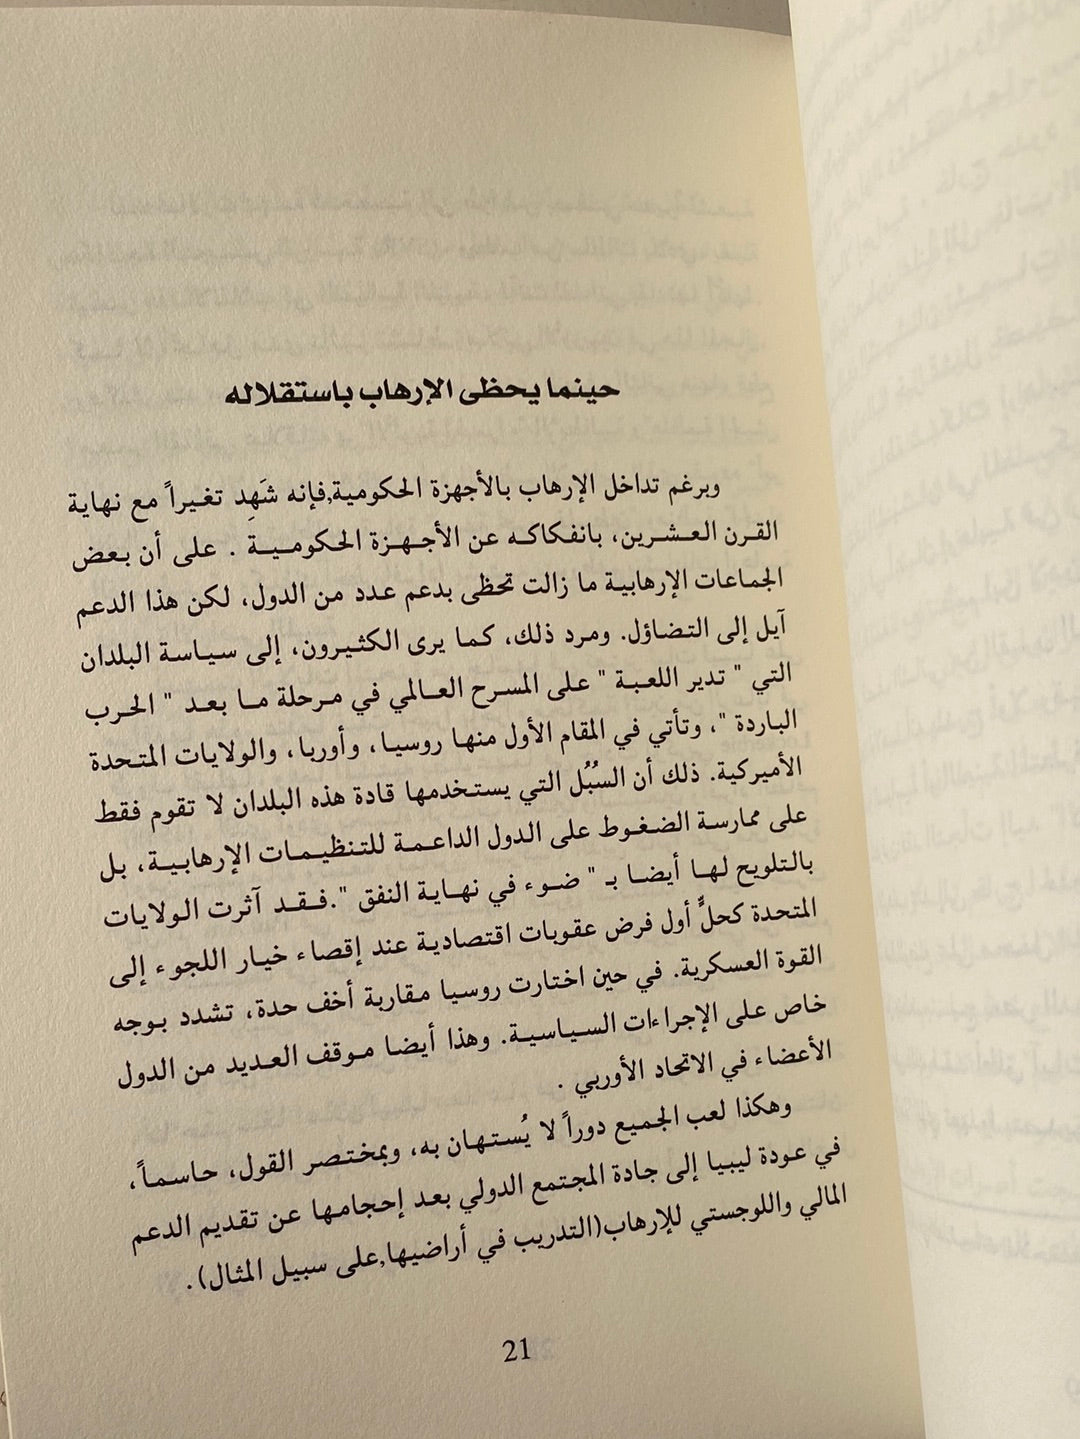 حينما يحظى الإرهاب باستقلاله
وبرغم تداخل الإرهاب بالأجهزة الحكومية,فإنه شَهِد تغيراً مع نهاية
القرن العشرين، بانفكاكه عن الأجهزة الحكومية . على أن بعض
الجماعات الإرهابية ما زالت تحظى بدعم عدد من الدول، لكن هذا الدعم
آيل إلى التضاؤل. ومرد ذلك، كما يرى الكثيرون، إلى سياسة البلدان
التي " تدير اللعبة " على المسرح العالمي في مرحلة ما بعد " الحرب
الباردة "، وتأتي في المقام الأول منها روسيا، وأوربا، والولايات المتحدة
الأميركية. ذلك أن السُبُل التي يستخدمها قادة هذه البلدان لا تقوم فقط
على ممارسة الضغوط على الدول الداعمة للتنظيمات الإرهابية، بل
بالتلويح لها أيضا بـ " ضوء في نهاية النفق ".فقد آثرت الولايات
المتحدة كحلٍّ أول فرض عقوبات اقتصادية عند إقصاء خيار اللجوء إلى
القوة العسكرية. في حين اختارت روسيا مقاربة أخف حدة، تشدد بوجه
خاص على الإجراءات السياسية. وهذا أيضا موقف العديد من الدول
الأعضاء في الاتحاد الأوربي .
وهكذا لعب الجميع دوراً لا يُستهان به، وبمختصر القول، حاسماً،
في عودة ليبيا إلى جادة المجتمع الدولي بعد إحجامها عن تقديم الدعم
المالي واللوجستي للإرهاب(التدريب في أراضيها,على سبيل المثال).
21